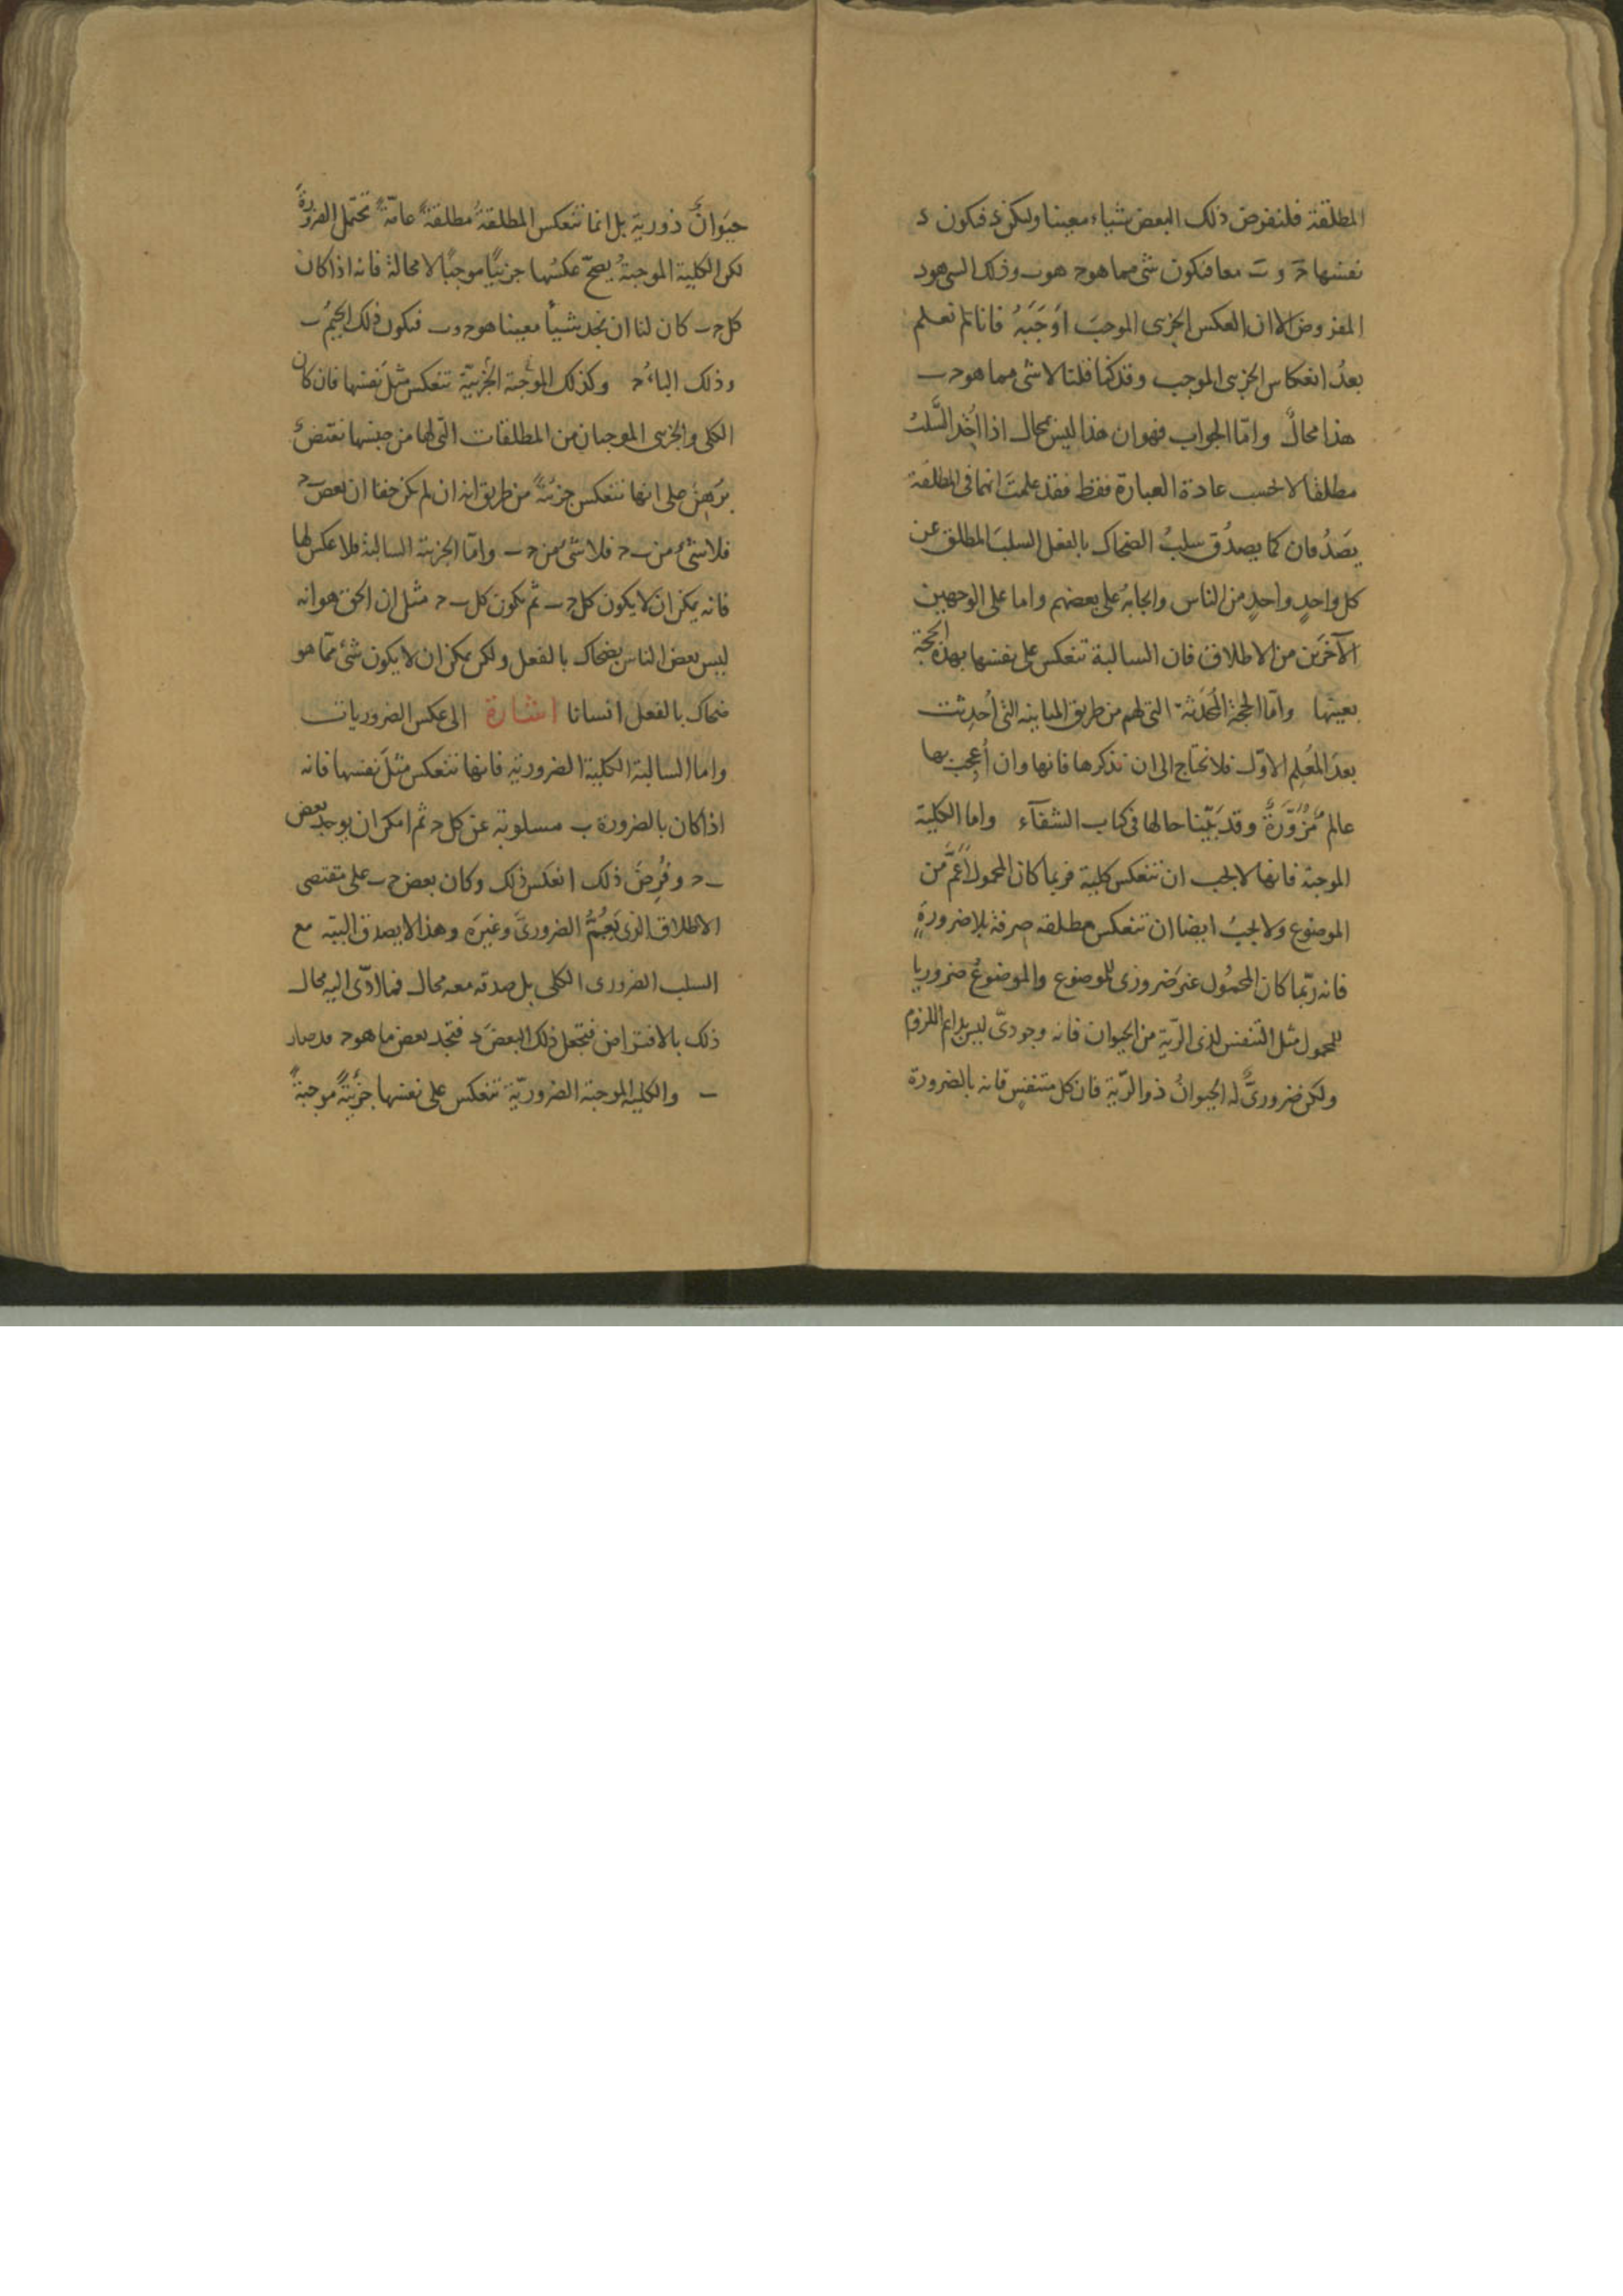 المطلقة فلنفرض ذلك البعض شياء معينا وليكن د فيكون د
نفسها ج و ب معا فيكون شى مما هو ج هو ب وذلك الشى هو د
المفروض لا ان العكس الجزى الموجب اوجبه فانا لم نعلم
بعد انعكاس الجزى الموجب وقد كنا قلنا لا شى مما هو ج ب
هذا محال واما الجواب فهو ان هذا ليس بمحال اذا اخذ السلب
مطلقا لا بحسب عادة العبارة فقط فقد علمت انهما فى المطلقة
يصدقان كما يصدق سلب الضحاك بالفعل السلب المطلق عن
كل واحد واحد من الناس وايجابه على بعضهم واما على الوجهين
الآخرين من الاطلاق فان السالبة تنعكس على نفسها بهذه الحجة
بعينها واما الحجة المحدثة التى لهم من طريق المباينه التى أحدثت
بعد المعلم الاول فلا نحتاج الى ان نذكرها فانها وان أعجب بها
عالم مزورة وقد بينا حالها فى كتاب الشفآء واما الكلية
الموجبة فانها لا يجب ان تنعكس كلية فربما كان المحمول اعم من
الموضوع ولا يجب ايضا ان تنعكس مطلقه صرفة بلا ضرورة
فانه ربما كان المحمول غير ضرورى للموضوع والموضوع ضروريا
للمحمول مثل التنفس لذى الرية من الحيوان فانه وجودى ليس بدايم اللزوم
ولكن ضرورى له الحيوان ذو الرية فان كل متنفس فانه بالضرورة
حيوان ذو رية بل انما تنعكس المطلقة مطلقة عامة تحتمل الضرورة
لكن الكلية الموجبة يصح عكسها جزئيا موجبا لا محالة فانه اذا كان
كل ج ب كان لنا ان نجد شيأ معينا هو ج و ب فيكون ذلك الجيم ب
وذلك الباء ج وكذلك الموجبة الجزئية تنعكس مثل نفسها فان كان
الكلى والجزى الموجبان من المطلقات التى لها من جنسها نقيض
برهن على انها تنعكس جزئية من طريق انه ان لم يكن حقا ان بعض ب ج
فلا شئ من ب ج فلا شئ من ج ب واما الجزئية السالبة فلا عكس لها
فانه يمكن ان لا يكون كل ج ب ثم يكون كل ب ج مثل ان الحق هو انه
ليس بعض الناس بضحاك بالفعل ولكن يمكن ان لا يكون شئ مما هو
ضحاك بالفعل انسانا اشارة الى عكس الضروريات
واما السالبة الكلية الضرورية فانها تنعكس مثل نفسها فانه
اذا كان بالضرورة ب مسلوبة عن كل ج ثم امكن ان يوجد بعض
ب ج وفرض ذلك انعكس ذلك وكان بعض ج ب على مقتضى
الاطلاق الذى يعم الضرورى وغيره وهذا لا يصدق البتة مع
السلب الضرورى الكلى بل صدقه معه محال فما ادى اليه محال
ذلك بالافتراض فتجعل ذلك البعض د فتجد بعض ما هو ج قد صار
ب والكلية الموجبة الضرورية تنعكس على نفسها جزئية موجبة